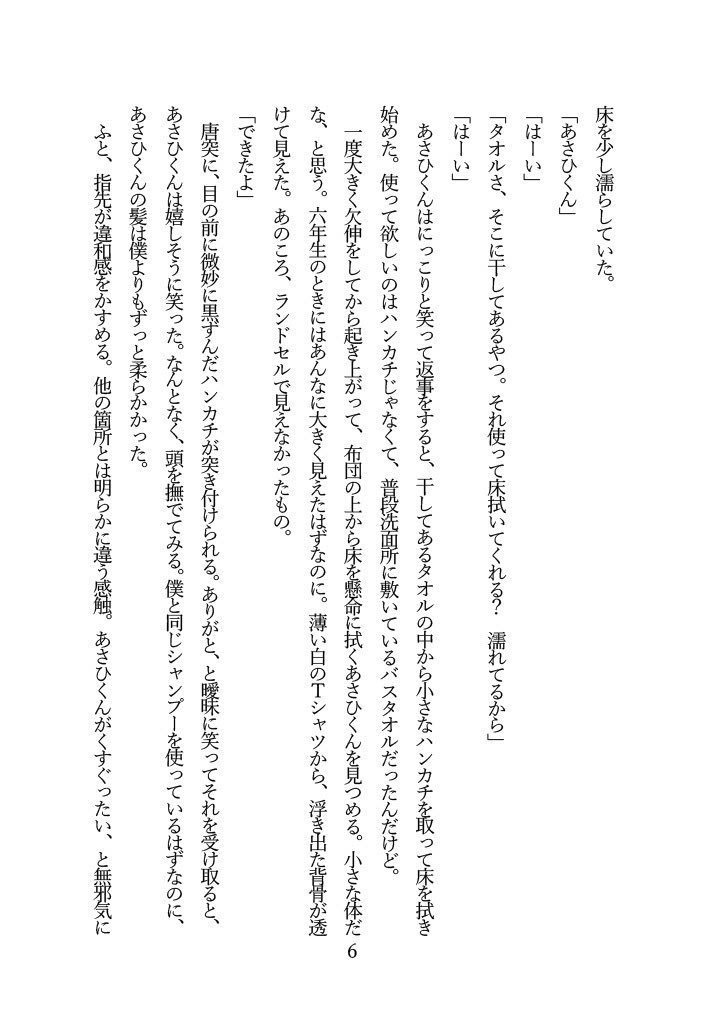 床を少し濡らしていた。
「あさひくん」
「はーい」
「タオルさ、そこに干してあるやつ。それ使って床拭いてくれる?　濡れてるから」
「はーい」
　あさひくんはにっこりと笑って返事をすると、干してあるタオルの中から小さなハンカチを取って床を拭き
始めた。使って欲しいのはハンカチじゃなくて、普段洗面所に敷いているバスタオルだったんだけど。
　一度大きく欠伸をしてから起き上がって、布団の上から床を懸命に拭くあさひくんを見つめる。小さな体だ
な、と思う。六年生のときにはあんなに大きく見えたはずなのに。薄い白のTシャツから、浮き出た背骨が透
けて見えた。あのころ、ランドセルで見えなかったもの。
「できたよ」
　唐突に、目の前に微妙に黒ずんだハンカチが突き付けられる。ありがと、と曖昧に笑ってそれを受け取ると、
あさひくんは嬉しそうに笑った。なんとなく、頭を撫でてみる。僕と同じシャンプーを使っているはずなのに、
あさひくんの髪は僕よりもずっと柔らかかった。
　ふと、指先が違和感をかすめる。他の箇所とは明らかに違う感触。あさひくんがくすぐったい、と無邪気に
6